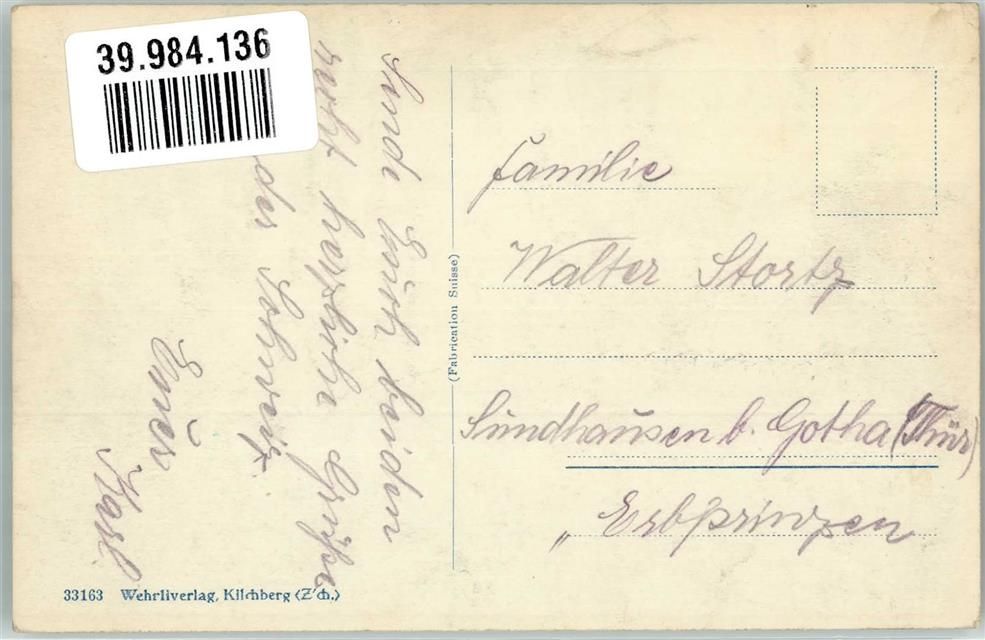 39.984.136
Sende Euch beiden
recht herzliche Grüße
der Schweiz.
Euer
Karl
(Fabrication Suisse)
Familie
Walter Stortz
Sundhausen b. Gotha (Thür)
„ Erbprinzen
33163 Wehrliverlag, Kilchberg (Z'ch.)